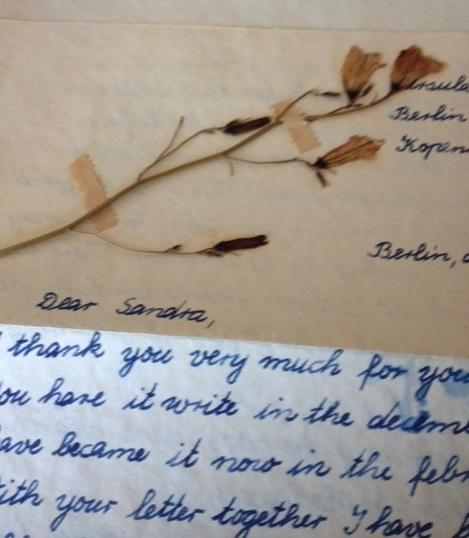 Ursula
Berlin
Kopen
Berlin, d
Dear Sandra,
I thank you very much for you
You have it write in the decem
have became it now in the febr
With your letter together I have